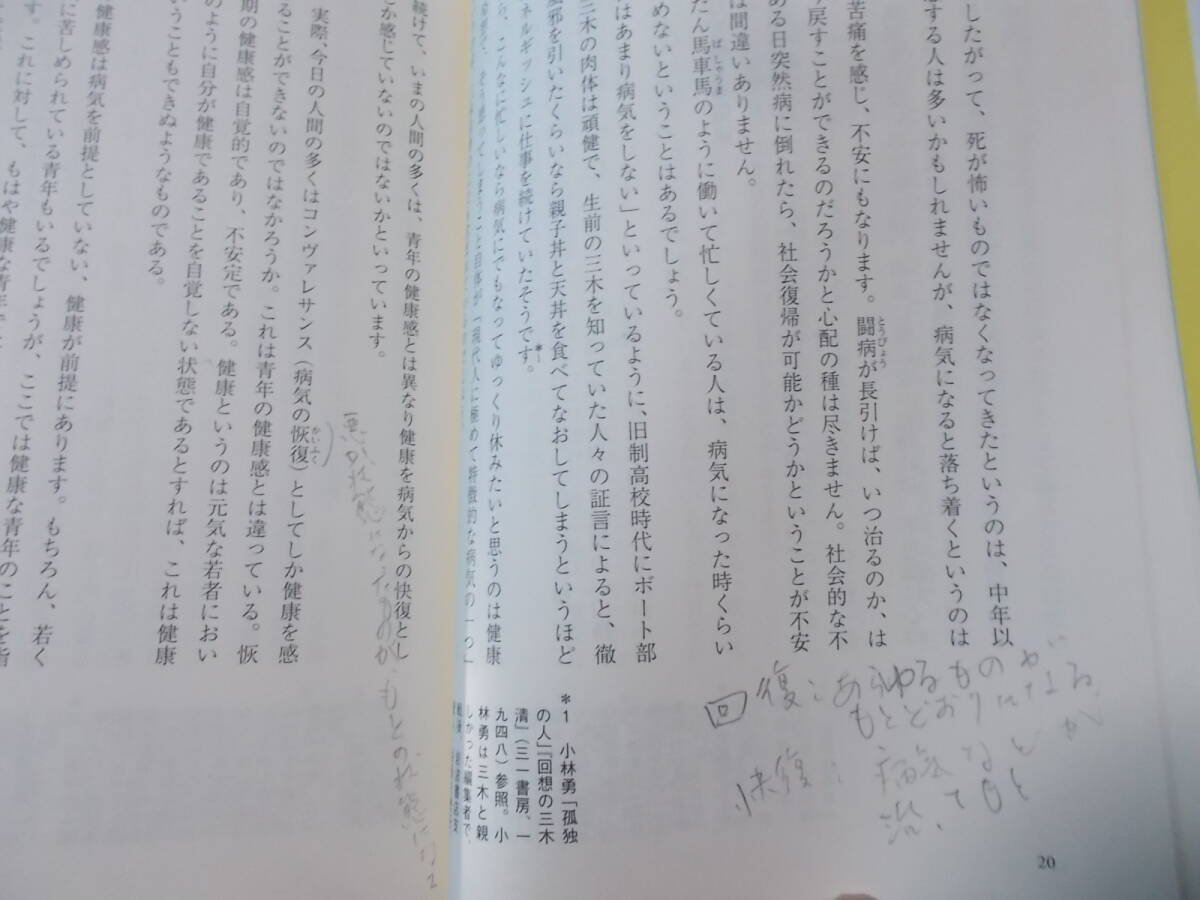 したがって、死が怖いものではなくなってきたというのは、中年以
する人は多いかもしれませんが、病気になると落ち着くというのは
苦痛を感じ、不安にもなります。闘病が長引けば、いつ治るのか、は
戻すことができるのだろうかと心配の種は尽きません。社会的な不
ある日突然病に倒れたら、社会復帰が可能かどうかということが不安
は間違いありません。
たん馬車馬のように働いて忙しくている人は、病気になった時くらい
めないということはあるでしょう。
はあまり病気をしない」といっているように、旧制高校時代にボート部
三木の肉体は頑健で、生前の三木を知っていた人々の証言によると、徹
風邪を引いたくらいなら親子丼と天丼を食べてなおしてしまうというほど
ネルギッシュに仕事を続けていたそうです。*
ら、こんなに忙しいなら病気にでもなってゆっくり休みたいと思うのは健康
そう思ってしまうこと自体が「現代人に極めて特徴的な病気の一つ」
*1 小林勇「孤独
の人」『回想の三木
清』（三一書房、一
九四八）参照。小
林勇は三木と親
しかった編集者で、
回復：あらゆるものが
もとどおりになる
快復：病気などが
治ってもと
20
続けて、いまの人間の多くは、青年の健康感とは異なり健康を病気からの快復とし
か感じていないのではないかといっています。
実際、今日の人間の多くはコンヴァレサンス（病気の恢復）としてしか健康を感
ることができないのではなかろうか。これは青年の健康感とは違っている。恢
期の健康感は自覚的であり、不安定である。健康というのは元気な若者におい
のように自分が健康であることを自覚しない状態であるとすれば、これは健康
いうこともできぬようなものである。
健康感は病気を前提としていない、健康が前提にあります。もちろん、若く
に苦しめられている青年もいるでしょうが、ここでは健康な青年のことを指
す。これに対して、もはや健康な青年で
悪い状態になったものが、もとの状態になる